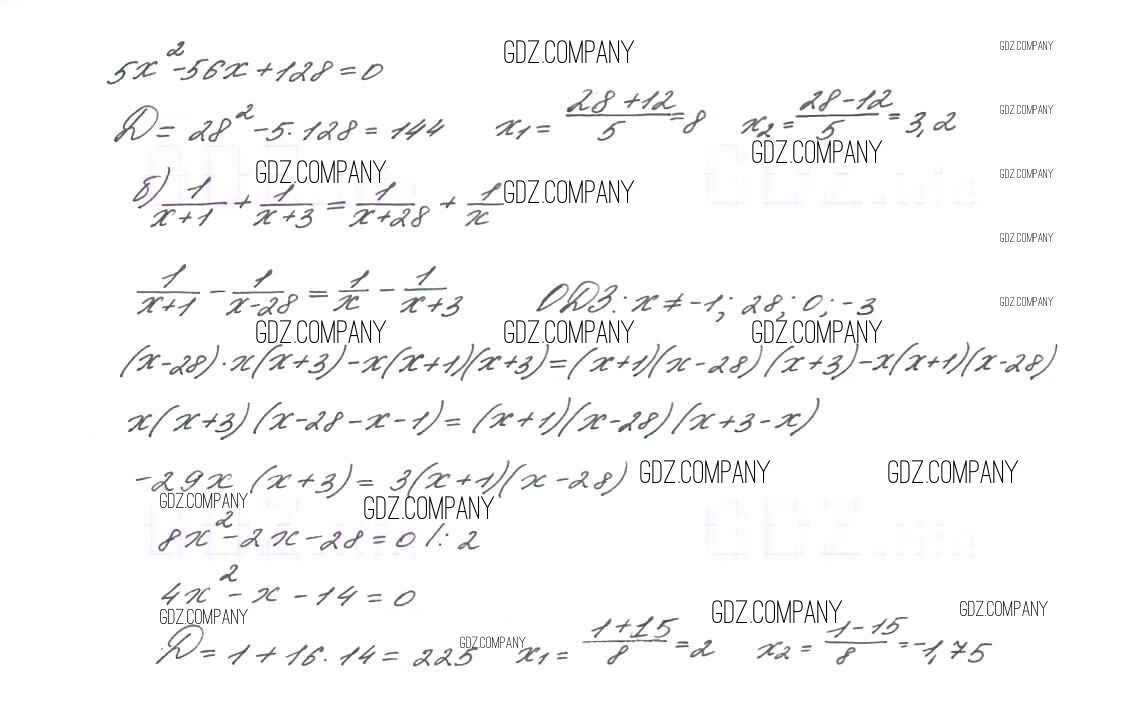 5x² - 56x + 128 = 0
GDZ.COMPANY GDZ.COMPANY
D = 28² - 5·128 = 144 x₁ = (28+12)/5 = 8 x₂ = (28-12)/5 = 3,2
GDZ.COMPANY
GDZ.COMPANY
GDZ.COMPANY GDZ.COMPANY GDZ.COMPANY
б) 1/(x+1) + 1/(x+3) = 1/(x+28) + 1/x
GDZ.COMPANY
1/(x+1) - 1/(x-28) = 1/x - 1/(x+3) ОДЗ: x ≠ -1; 28; 0; -3
GDZ.COMPANY
GDZ.COMPANY GDZ.COMPANY GDZ.COMPANY
(x-28)·x(x+3) - x(x+1)(x+3) = (x+1)(x-28)(x+3) - x(x+1)(x-28)
x(x+3)(x-28-x-1) = (x+1)(x-28)(x+3-x)
-29x(x+3) = 3(x+1)(x-28)
GDZ.COMPANY GDZ.COMPANY
GDZ.COMPANY GDZ.COMPANY
8x² - 2x - 28 = 0 /: 2
4x² - x - 14 = 0
GDZ.COMPANY GDZ.COMPANY GDZ.COMPANY
D = 1 + 16·14 = 225 x₁ = (1+15)/8 = 2 x₂ = (1-15)/8 = -1,75
GDZ.COMPANY